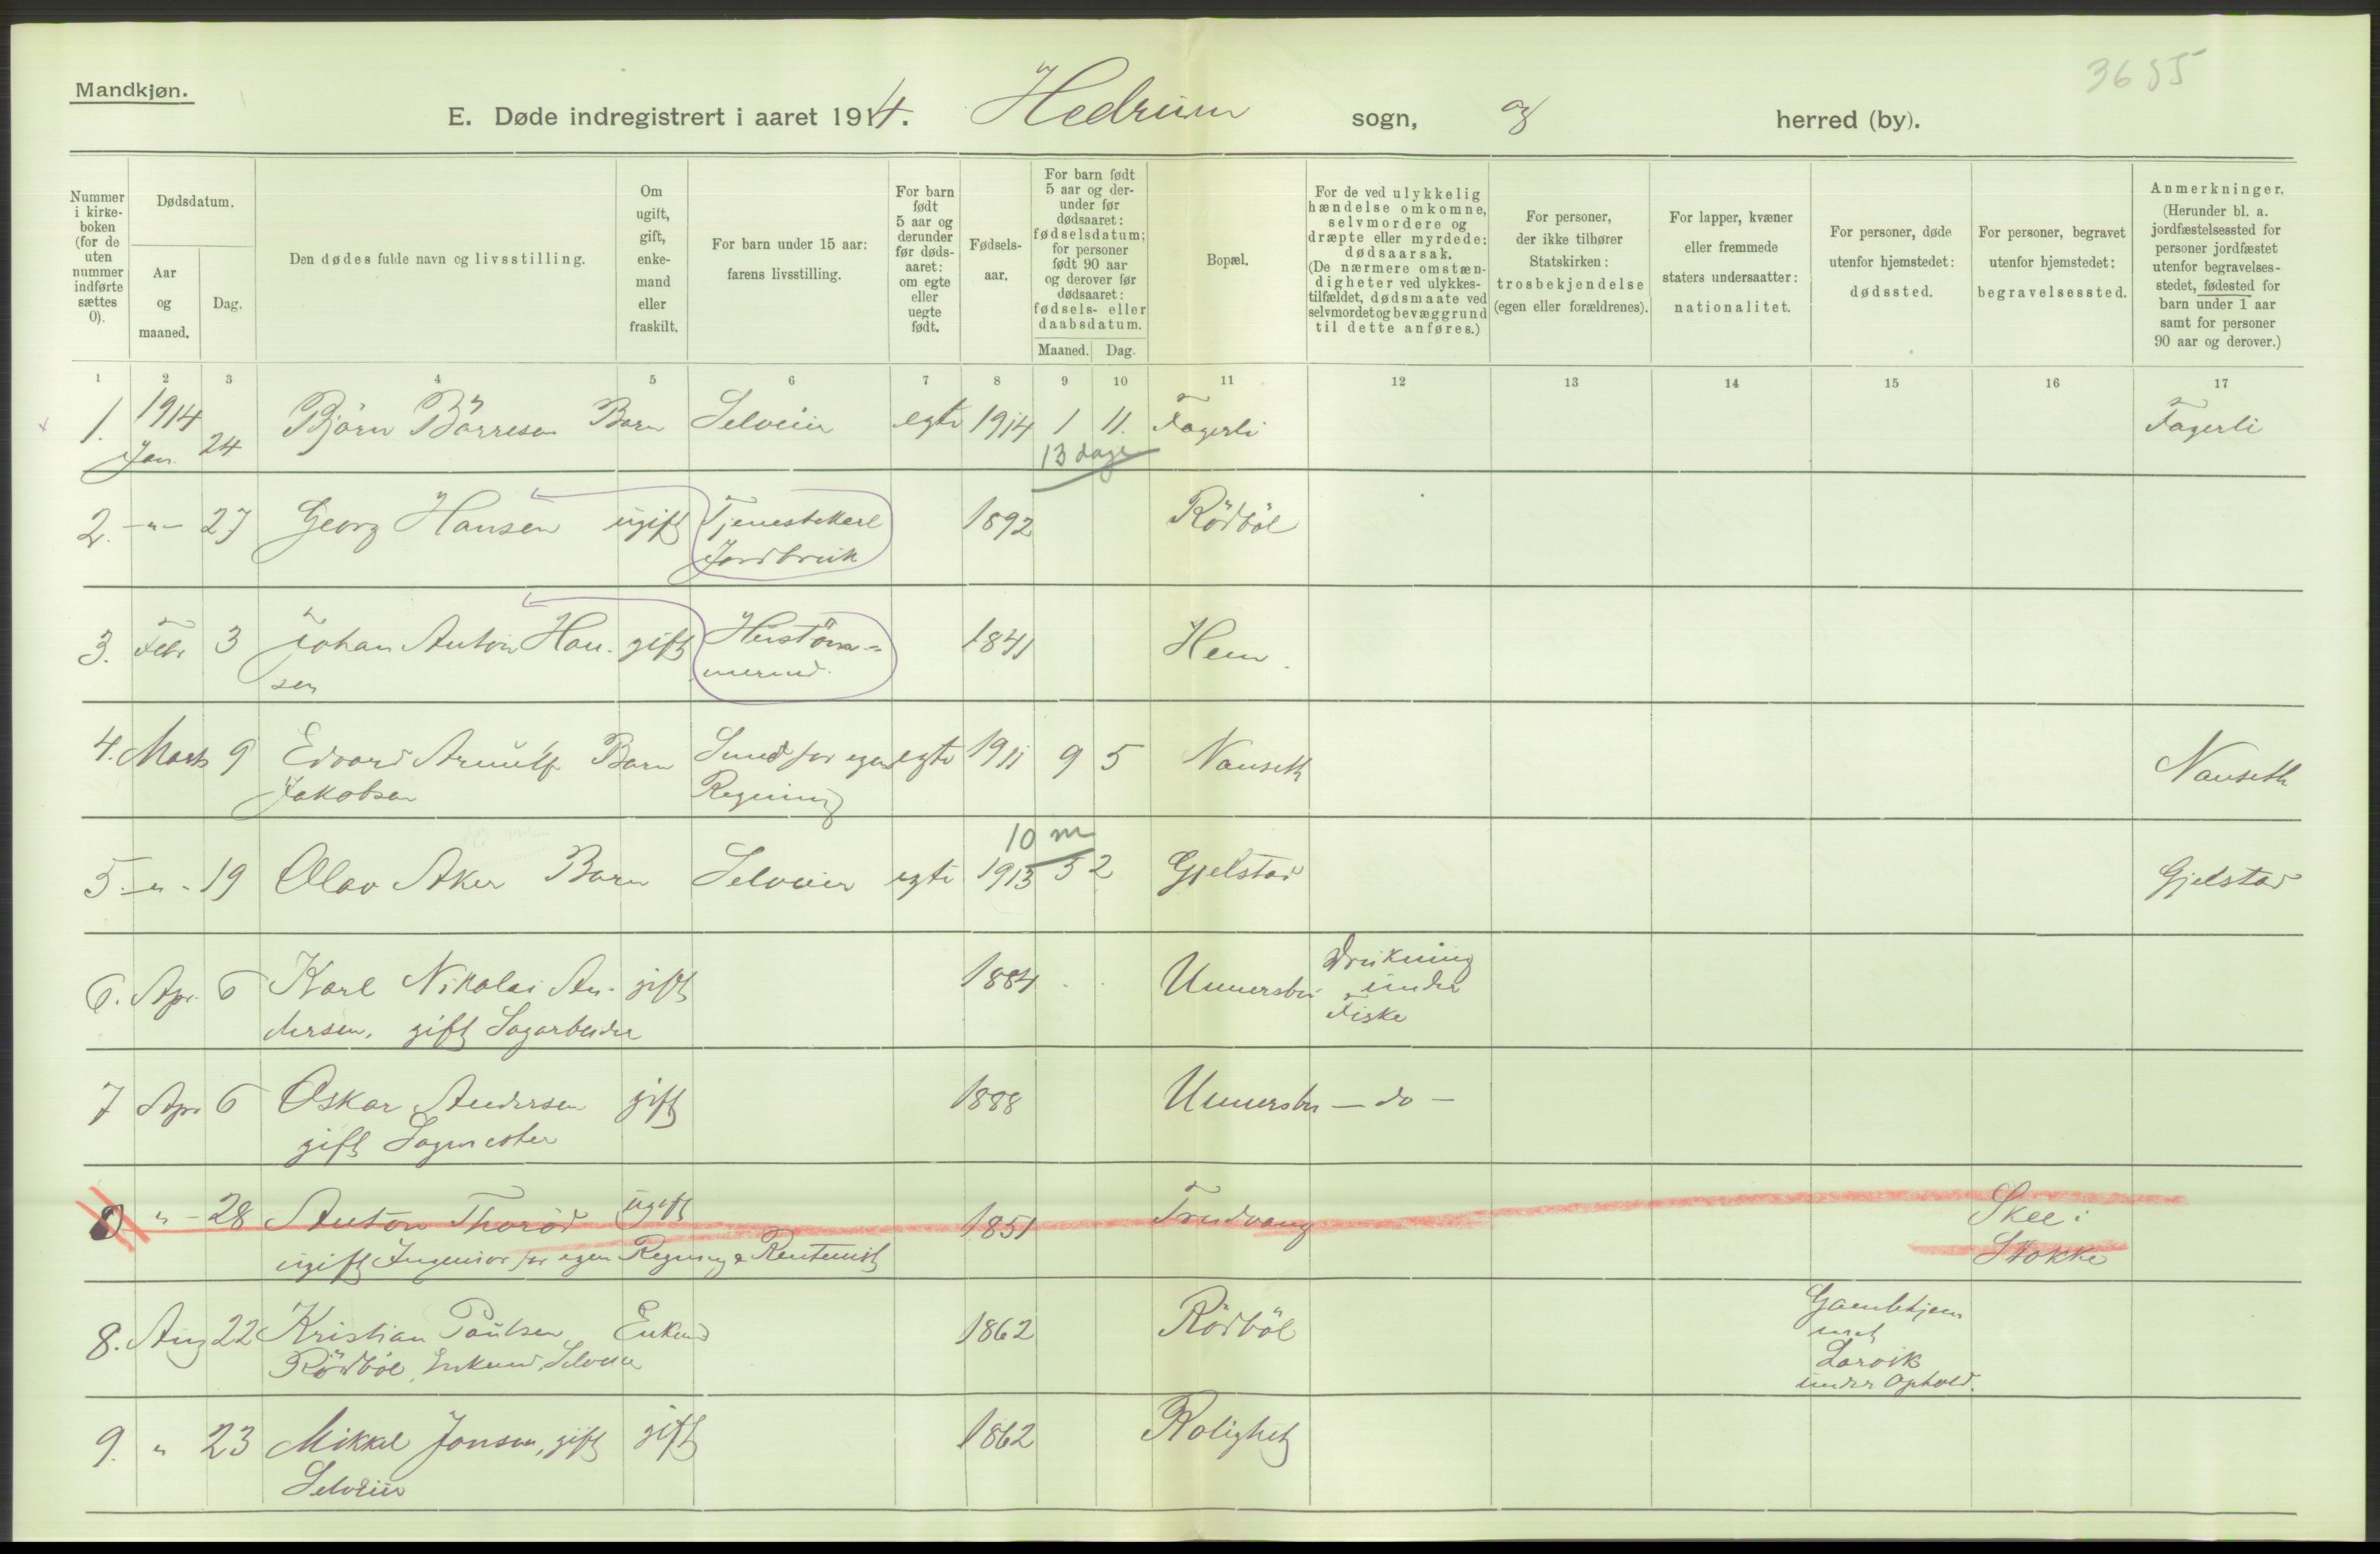 3655
Mandkjøn.
E. Døde indregistrert i aaret 1914. Hedrum sogn, og herred (by).
Nummer
i kirke-
boken
(for de
uten
nummer
indførte
sættes
0).
Dødsdatum.
Aar
og
maaned.
Dag.
Den dødes fulde navn og livsstilling.
Om
ugift,
gift,
enke-
mand
eller
fraskilt.
For barn under 15 aar:
farens livsstilling.
For barn
født
5 aar og
derunder
før døds-
aaret:
om egte
eller
uegte
født.
Fødsels-
aar.
For barn født
5 aar og der-
under før
dødsaaret:
fødselsdatum;
for personer
født 90 aar
og derover før
dødsaaret:
fødsels- eller
daabsdatum.
Maaned. Dag.
Bopæl.
For de ved ulykkelig
hændelse omkomne,
selvmordere og
dræpte eller myrdede:
dødsaarsak.
(De nærmere omstæn-
digheter ved ulykkes-
tilfældet, dødsmaate ved
selvmordet og bevæggrund
til dette anføres.)
For personer,
der ikke tilhører
Statskirken:
trosbekjendelse
(egen eller forældrenes).
For lapper, kvæner
eller fremmede
staters undersaatter:
nationalitet.
For personer, døde
utenfor hjemstedet:
dødssted.
For personer, begravet
utenfor hjemstedet:
begravelsessted.
Anmerkninger.
(Herunder bl. a.
jordfæstelsessted for
personer jordfæstet
utenfor begravelses-
stedet, fødested for
barn under 1 aar
samt for personer
90 aar og derover.)
1 2 3 4 5 6 7 8 9 10 11 12 13 14 15 16 17
1914
1. Jan. 24 Björn Börresen Barn Selveier egte 1914 1 11. Fagerli Fagerli
13 dage
2. -"- 27 Georg Hansen ugift Tjenestekarl 1892 Rödböl
Jordbruk
3. Febr 3 Johan Anton Han- gift Hustöm- 1841 Hem.
sen mermd.
4. Marts 9 Edvard Arnulf Barn Smed for egen egte 1911 9 5 Nanseth Nanseth
Jakobsen Regning
10 m
5 -"- 19 Olav Aker Barn Selveier egte 1913 5 2 Gjelstad Gjelstad
6. Apr. 6 Karl Nikolai An- gift 1884 Drukning
dersen, gift Sagarbeider under
Fiske
7 Apr 6 Oskar Andersen gift 1888 - do -
gift Sagmester
0 " - 28 Anton Thoröd ugift 1851 Trudvang Skee i
ugift Ingeniør for egen Regning & Rentenist Stokke
8. Aug 22 Kristian Paulsen Enkemd 1862 Rödböl Gamlehjem
Rödböl, Enkemd, Selveier met
Larvik
under Ophold.
9. " 23 Mikkel Jonsen, gift gift 1862 Rolighet
Selveier